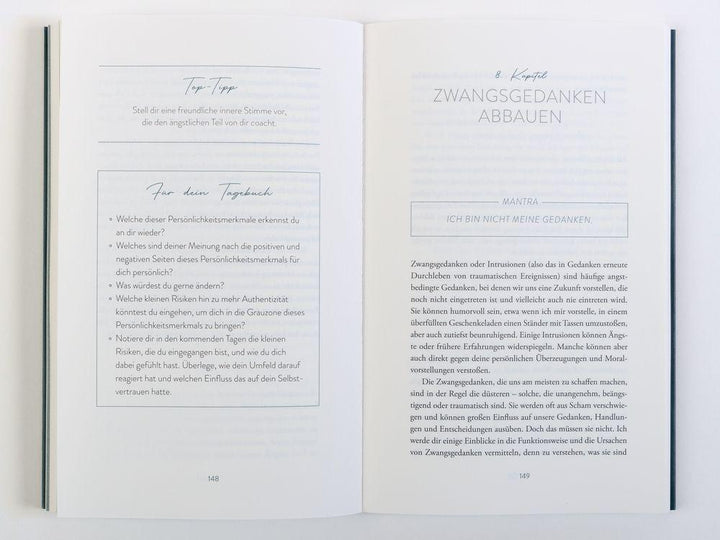 Top-Tipp
Stell dir eine freundliche innere Stimme vor,
die den ängstlichen Teil von dir coacht.
Für dein Tagebuch
• Welche dieser Persönlichkeitsmerkmale erkennst du
an dir wieder?
• Welches sind deiner Meinung nach die positiven und
negativen Seiten dieses Persönlichkeitsmerkmals für
dich persönlich?
• Was würdest du gerne ändern?
• Welche kleinen Risiken hin zu mehr Authentizität
könntest du eingehen, um dich in die Grauzone dieses
Persönlichkeitsmerkmals zu bringen?
• Notiere dir in den kommenden Tagen die kleinen
Risiken, die du eingegangen bist, und wie du dich
dabei gefühlt hast. Überlege, wie dein Umfeld darauf
reagiert hat und welchen Einfluss das auf dein Selbst-
vertrauen hatte.
148
8. Kapitel
ZWANGSGEDANKEN
ABBAUEN
MANTRA
ICH BIN NICHT MEINE GEDANKEN.
Zwangsgedanken oder Intrusionen (also das in Gedanken erneute
Durchleben von traumatischen Ereignissen) sind häufige angst-
bedingte Gedanken, bei denen wir uns eine Zukunft vorstellen, die
noch nicht eingetreten ist und vielleicht auch nie eintreten wird.
Sie können humorvoll sein, etwa wenn wir uns vorstellen, in einem
überfüllten Geschenkeladen einen Ständer mit Tassen umzustoßen,
aber auch zutiefst beunruhigend. Einige Intrusionen können Ängs-
te oder frühere Erfahrungen widerspiegeln. Manche können aber
auch direkt gegen deine persönlichen Überzeugungen und Moral-
vorstellungen verstoßen.
Die Zwangsgedanken, die uns am meisten zu schaffen machen,
sind in der Regel die düsteren – solche, die unangenehm, beängs-
tigend oder traumatisch sind. Sie werden oft aus Scham verschwie-
gen und können großen Einfluss auf unsere Gedanken, Handlun-
gen und Entscheidungen ausüben. Doch das müssen sie nicht. Ich
werde dir einige Einblicke in die Funktionsweise und die Ursachen
von Zwangsgedanken vermitteln, denn zu verstehen, was sie sind
149